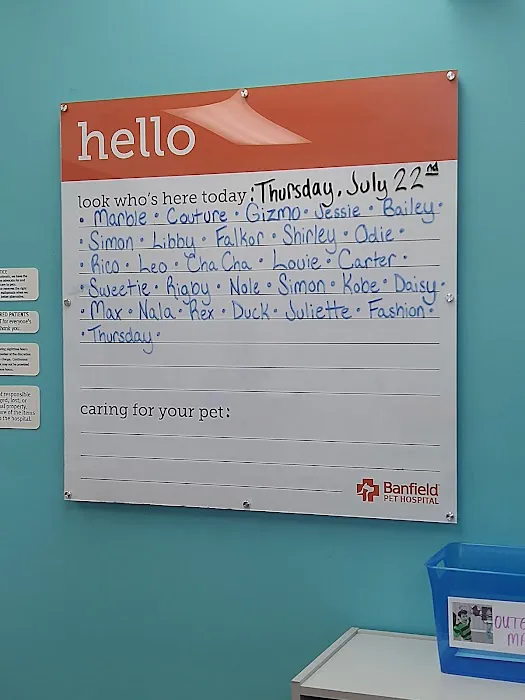 hello
look who's here today: Thursday, July 22nd
• Marble • Couture • Gizmo • Jessie • Bailey •
• Simon • Libby • Falkor • Shirley • Odie •
• Rico • Leo • ChaCha • Louie • Carter •
• Sweetie • Rigby • Nole • Simon • Kobe • Daisy •
• Max • Nala • Rex • Duck • Juliette • Fashion •
• Thursday •
caring for your pet:
Banfield
PET HOSPITAL